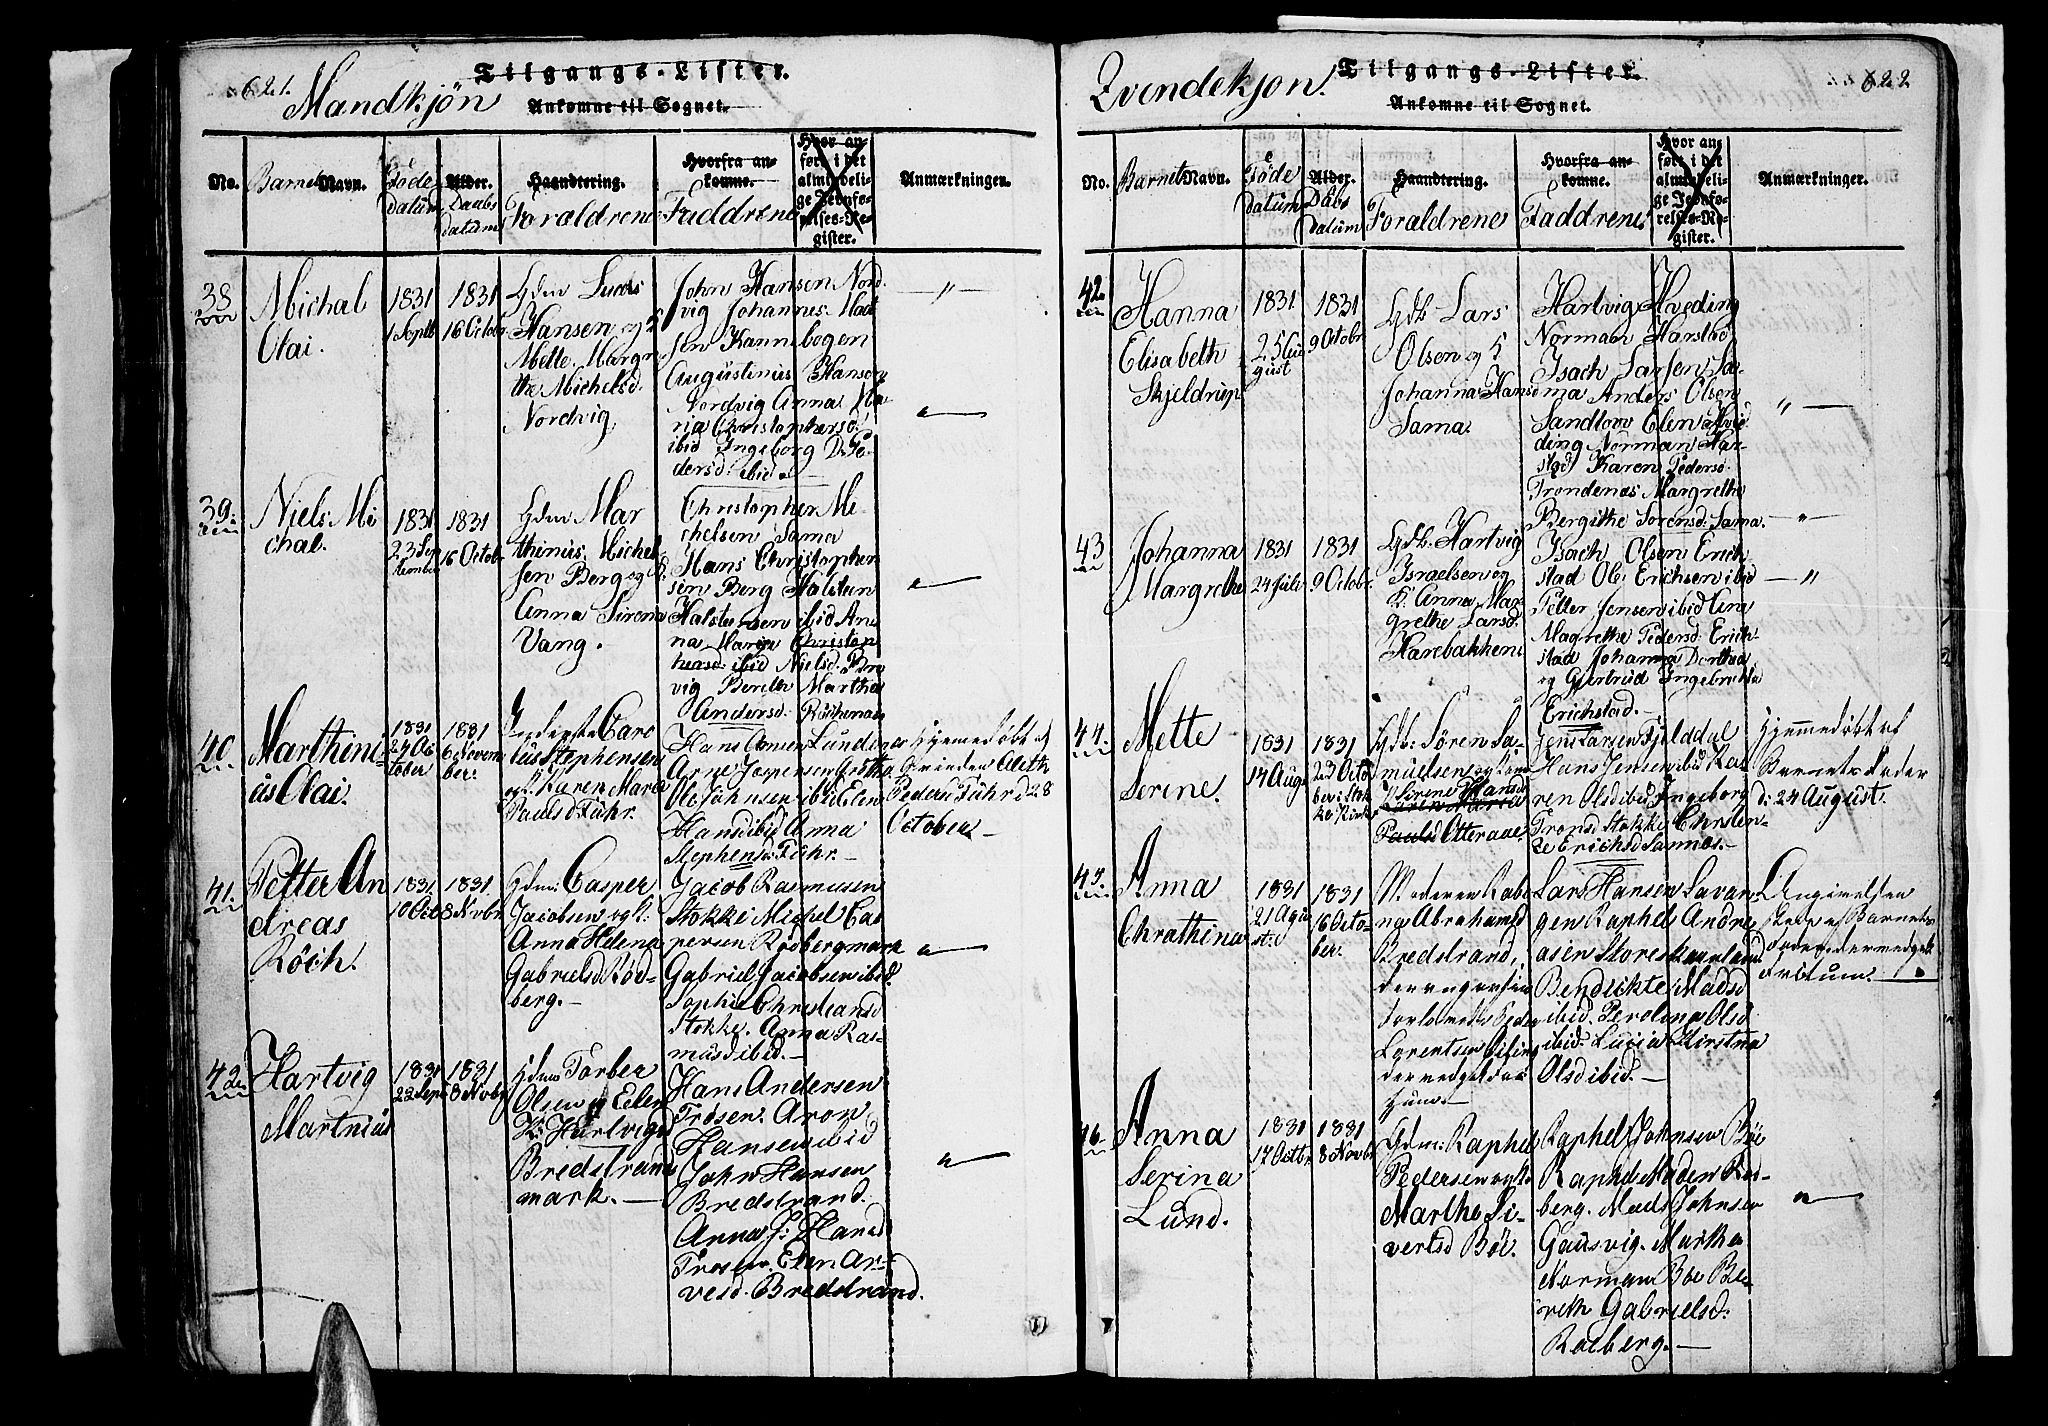 621.
Mandkjön
Tilgangs-Lister.
Ankomne til Sognet.
No.
Barnets Navn.
Föde datum
Alder. Daabs datum
Haandtering. Forældrene
Hvorfra ankomne. Faddrene
Hvor anført i det almindelige Jevnførelses-Register.
Anmærkninger.
38
Michal
Olai.
1831
1 Septb
1831
16 Octobr
Gdm Lucas
Hansen og
Mette Margre
the Michelsd
Nordvig
John Hansen Nord
vig Johannes
sen Kannebogen
Augustinus Hansen
Nordvig Anna Ma
na Christophersd
ibid Ingeborg Pe
dersd ibid
— " —
39.
Niels Mi
chal.
1831
23 Sep
tember
1831
16 Octobr
Gdm Mar
thinus Michel
sen Berg og K.
Anna Sirena
Vang.
Christopher Mi
chelsen Sama
Hans Christopher
sen Berg Halsten
Halstensen ibid An
na Maria Christop
hersd ibid Nielsd
vig Bereth Martha
Andersd.
40.
Marthini
us Olai.
1831
24 Oc
tober
1831
6 Novem
ber.
Caro
lus Stephensen
og K. Karen Maria
Paulsd Fuhr.
Hans Arnsen Lundenes
Arne Jospensen
Ole Johnsen ibid Elen
Hansd ibid Anna
Stephensd Fuhr.—
Hjemedöbt af
Qvinden Aleth
Pedersd Fuhr d 28
October —
41.
Petter An
dreas
Röch.
1831
10 Oct
1831
8 Novbr
Gdm: Casper
Jacobsen og K:
Anna Helena
Gabrielsd Röd-
berg.—
Jacob Rasmusen
Stokke Michel Cas
persen Rödbergmark
Gabriel Jacobsen ibid.
Sophie Christiansd
Stokke. Anna Ras-
musd ibid.—
42
Hartvig
Martnius
1831
23 Sept
1831
8 Novbr
Gdm Torber
Olsen og Elen
K: Hartvigsd
Bredstrand
mark.—
Hans Andersen
Trösen. Aron
Hansen ibid
John Hansen
Bredstrand.
Anna J: Hansd
Trosen. Elen Ar-
vesd. Bredstrand.
622
Qvindekjon.
Tilgangs-Lister.
Ankomne til Sognet.
No.
Barnets Navn.
Föde datum
Alder. Dåbs datum
Haandtering. Forældrene
Hvorfra ankomne. Faddrene
Hvor anført i det almindelige Jevnførelses-Register.
Anmærkninger.
42
Hanna
Elisabeth
Skjeldrup
1831
25 Au
gust
1831
9 Octobr
Gdb Lars
Olsen og
Johanna Hansd
Sama
Hartvig Hveding
Normann Harstad
Isach Larsen Sa-
ma Anders Olsen
Sandtorv Elen Hvid
ding Norman Har
stad Karen Pedersd
Trondenæs Margrethe
Bergithe Sorensd: Sama.
" —
43
Johanna
Margrethe
1831
24 Juli
1831
9 Octobr.
Gdb. Hartvig
Israelsen og
K. Anna Mar
grethe Larsd.
Harebakken
Isach Olsen Erich
stad Ole Erichsen ibid
Petter Jensen ibid Ana
Magrethe Pedersd. Erich-
stad Johanna Dorthea
og Gjertrud Ingebricktsd
Erichstad.—
— "
44.
Mette
Serine.
1831
14 Augs
1831
23 Octo
ber i Stok
ke Kirke
Gdb: Sören Sa-
muelsen og Kone
Serene Hansd
Karen Maria
Paulsd Otteraae
Jens Larsen Fjelddal
Hans Jensen ibid Ka
ren Olsd ibid Ingeborg
Tronsd Stokke Chrsten-
ze Erichsd Sannæs.—
Hjemmedöbt af
Barnets Fader
d: 24 August.
45.
Anna
Chrathina
1831
21 Agu
st:
1831
16 Octo-
ber.
Moderen Rabe
na Abrahamsd
Bredstrand,
Lorentsen
Lars Hansen Lavan
gen Raphel Andre
asen Storeskaarland
Bendickte Madsd
ibid. Perolina Olsd
ibid. Lucia Kirstna
Olsd ibid.—
Angivelsen
skede af Barnets
46
Anna
Serina
Lund.
1831
17 Octbr
1831
8 Novbr
Gdm: Raphel
Pedersen og K:
Marthe Si-
vertsd Böe.
Raphel Johnsen Böe
Raphel Madsen Röd-
berg. Mads Johnsen
Gausvig. Martha
Norman Böe Be-
reth Gabrielsd.
Rodberg.—